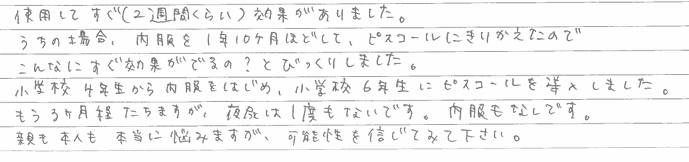 使用してすぐ(2週間くらい)効果がありました。
うちの場合、内服を1年10ケ月ほどして、ピスコールにきりかえたので
こんなにすぐ効果がでるの？とびっくりしました。
小学校4年生から内服をはじめ、小学校6年生にピスコールを導入しました。
もう3ケ月経たちますが、夜尿は1度もないです。内服もなしです。
親も本人も本当に悩みますが、可能性を信じてみて下さい。